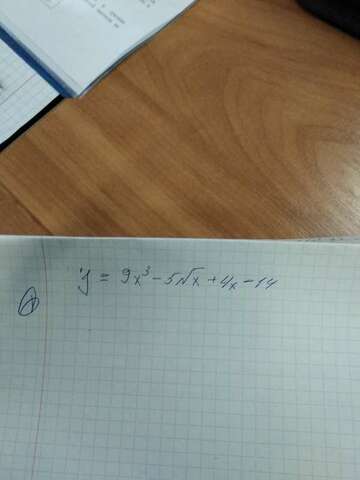 y = 9x³ - 5√x + 4x - 14